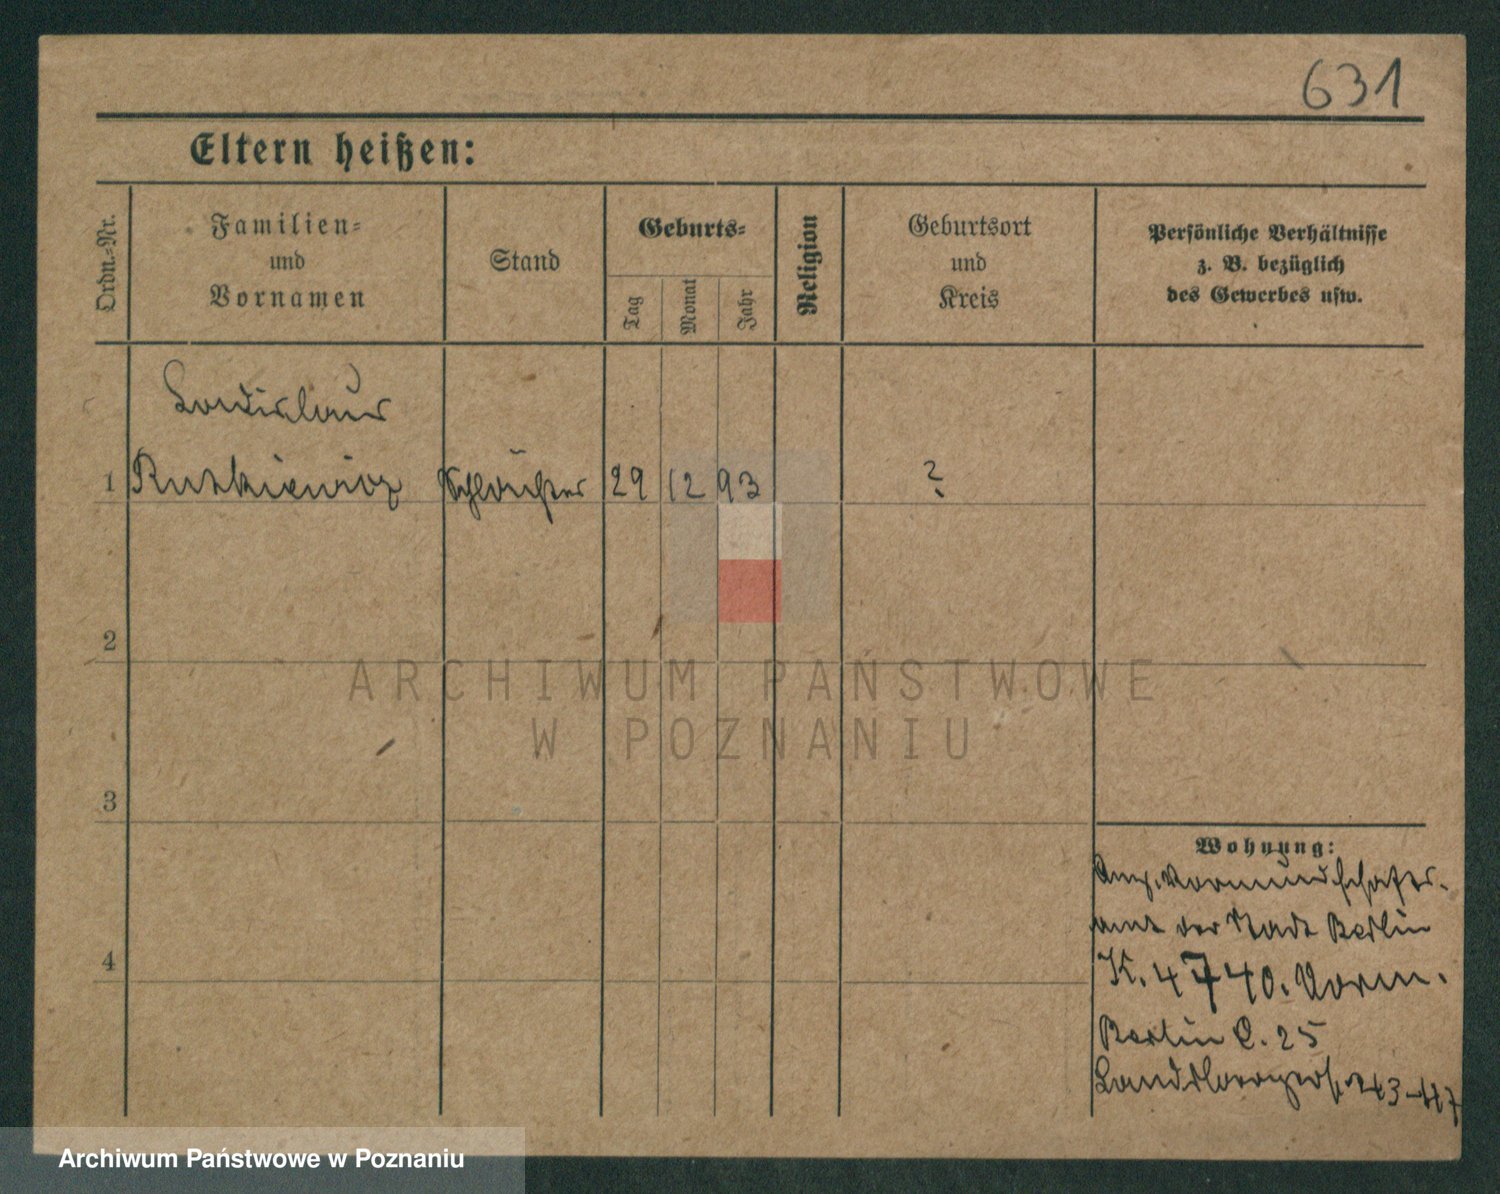 631
Eltern heißen:
Ordn.-Nr.
Familien-
und
Vornamen
Stand
Geburts-
Tag
Monat
Jahr
Religion
Geburtsort
und
Kreis
Persönliche Verhältnisse
z. B. bezüglich
des Gewerbes usw.
1 Rutkiewicz 29 12 93 ?
2
ARCHIWUM PAŃSTWOWE
W POZNANIU
3
Wohnung:
Vormundschafts-
amt der Stadt Berlin
4
K. 4740. Vorm.
Berlin C. 25
Landsbergerstr. 43-47
Archiwum Państwowe w Poznaniu